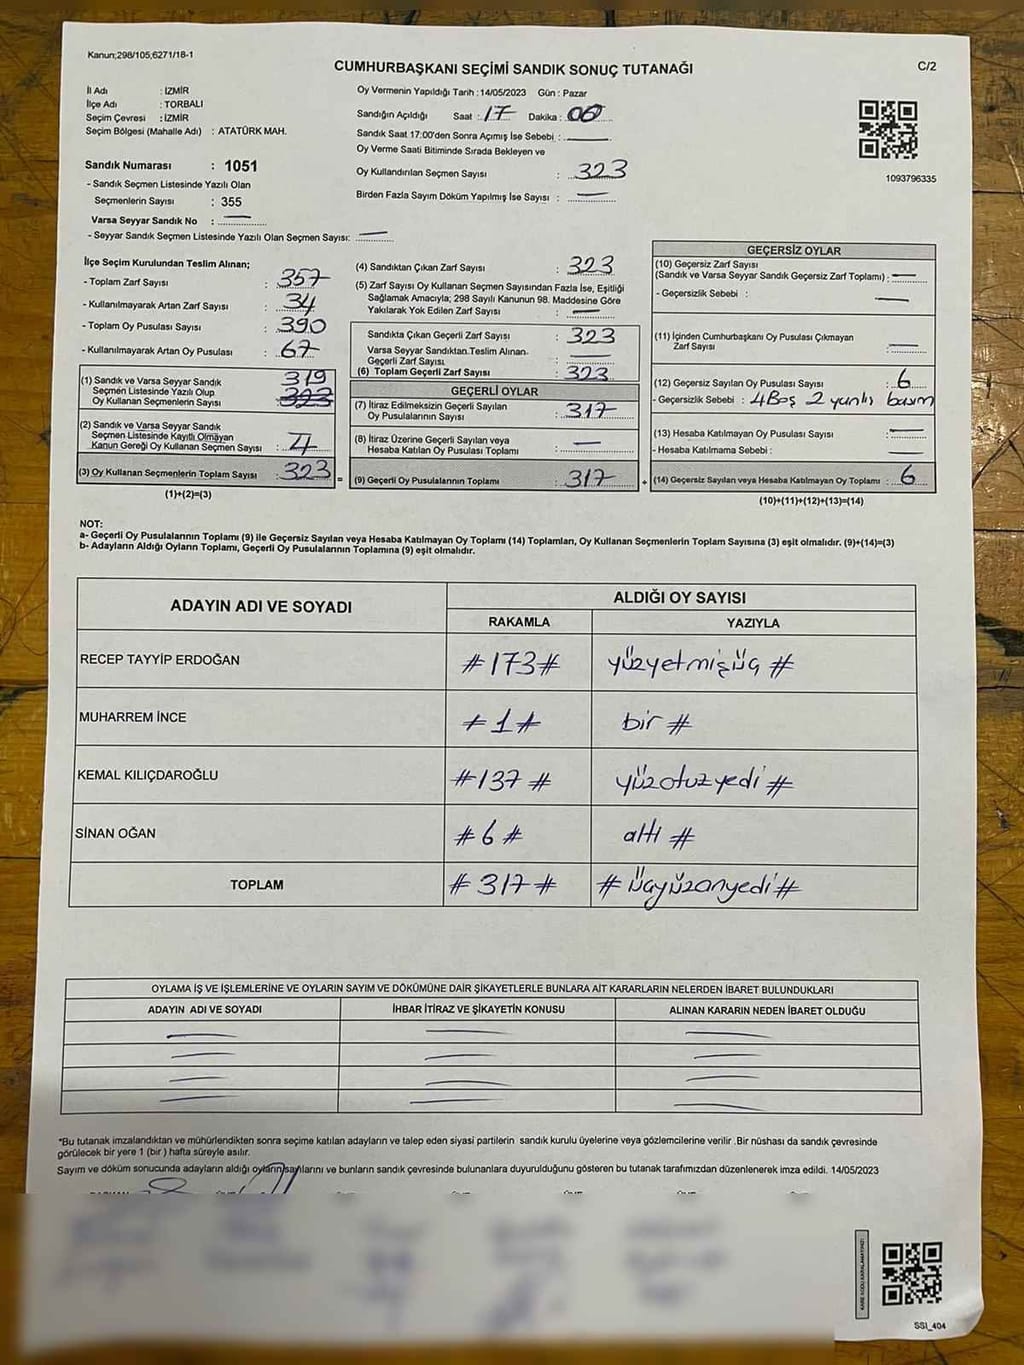 Kanun;298/105;6271/18-1
CUMHURBAŞKANI SEÇİMİ SANDIK SONUÇ TUTANAĞI
C/2
İl Adı : İZMİR
İlçe Adı : TORBALI
Seçim Çevresi : İZMİR
Seçim Bölgesi (Mahalle Adı) : ATATÜRK MAH.
Sandık Numarası : 1051
- Sandık Seçmen Listesinde Yazılı Olan
Seçmenlerin Sayısı : 355
Varsa Seyyar Sandık No :
- Seyyar Sandık Seçmen Listesinde Yazılı Olan Seçmen Sayısı:
Oy Vermenin Yapıldığı Tarih :14/05/2023 Gün : Pazar
Sandığın Açıldığı Saat : 17 Dakika : 00
Sandık Saat 17:00'den Sonra Açımış İse Sebebi :
Oy Verme Saati Bitiminde Sırada Bekleyen ve
Oy Kullandırılan Seçmen Sayısı : 323
Birden Fazla Sayım Döküm Yapılmış İse Sayısı :
1093796335
İlçe Seçim Kurulundan Teslim Alınan;
- Toplam Zarf Sayısı : 357
- Kullanılmayarak Artan Zarf Sayısı : 34
- Toplam Oy Pusulası Sayısı : 390
- Kullanılmayarak Artan Oy Pusulası : 67
(1) Sandık ve Varsa Seyyar Sandık 319
Seçmen Listesinde Yazılı Olup
Oy Kullanan Seçmenlerin Sayısı : 323
(2) Sandık ve Varsa Seyyar Sandık
Seçmen Listesinde Kayıtlı Olmayan
Kanun Gereği Oy Kullanan Seçmen Sayısı : 4
(3) Oy Kullanan Seçmenlerin Toplam Sayısı : 323
(1)+(2)=(3)
(4) Sandıktan Çıkan Zarf Sayısı : 323
(5) Zarf Sayısı Oy Kullanan Seçmen Sayısından Fazla İse, Eşitliği
Sağlamak Amacıyla; 298 Sayılı Kanunun 98. Maddesine Göre
Yakılarak Yok Edilen Zarf Sayısı :
Sandıkta Çıkan Geçerli Zarf Sayısı : 323
Varsa Seyyar Sandıktan Teslim Alınan
Geçerli Zarf Sayısı :
(6) Toplam Geçerli Zarf Sayısı : 323
GEÇERLİ OYLAR
(7) İtiraz Edilmeksizin Geçerli Sayılan
Oy Pusulalarının Sayısı : 317
(8) İtiraz Üzerine Geçerli Sayılan veya
Hesaba Katılan Oy Pusulası Toplamı :
= (9) Geçerli Oy Pusulalarının Toplamı : 317
GEÇERSİZ OYLAR
(10) Geçersiz Zarf Sayısı
(Sandık ve Varsa Seyyar Sandık Geçersiz Zarf Toplamı) :
- Geçersizlik Sebebi :
(11) İçinden Cumhurbaşkanı Oy Pusulası Çıkmayan
Zarf Sayısı :
(12) Geçersiz Sayılan Oy Pusulası Sayısı : 6
- Geçersizlik Sebebi : 4 Boş 2 yanlış basım
(13) Hesaba Katılmayan Oy Pusulası Sayısı :
- Hesaba Katılmama Sebebi :
+ (14) Geçersiz Sayılan veya Hesaba Katılmayan Oy Toplamı : 6
(10)+(11)+(12)+(13)=(14)
NOT:
a- Geçerli Oy Pusulalarının Toplamı (9) ile Geçersiz Sayılan veya Hesaba Katılmayan Oy Toplamı (14) Toplamları, Oy Kullanan Seçmenlerin Toplam Sayısına (3) eşit olmalıdır. (9)+(14)=(3)
b- Adayların Aldığı Oyların Toplamı, Geçerli Oy Pusulalarının Toplamına (9) eşit olmalıdır.
ADAYIN ADI VE SOYADI
ALDIĞI OY SAYISI
RAKAMLA YAZIYLA
RECEP TAYYİP ERDOĞAN #173# yüzyetmişüç #
MUHARREM İNCE #1# bir #
KEMAL KILIÇDAROĞLU #137# yüzotuzyedi #
SİNAN OĞAN #6# altı #
TOPLAM #317# # üçyüzonyedi #
OYLAMA İŞ VE İŞLEMLERİNE VE OYLARIN SAYIM VE DÖKÜMÜNE DAİR ŞİKAYETLERLE BUNLARA AİT KARARLARIN NELERDEN İBARET BULUNDUKLARI
ADAYIN ADI VE SOYADI İHBAR İTİRAZ VE ŞİKAYETİN KONUSU ALINAN KARARIN NEDEN İBARET OLDUĞU
*Bu tutanak imzalandıktan ve mühürlendikten sonra seçime katılan adayların ve talep eden siyasi partilerin sandık kurulu üyelerine veya gözlemcilerine verilir .Bir nüshası da sandık çevresinde
görülecek bir yere 1 (bir ) hafta süreyle asılır.
Sayım ve döküm sonucunda adayların aldığı oyların sayılarını ve bunların sandık çevresinde bulunanlara duyurulduğunu gösteren bu tutanak tarafımızdan düzenlenerek imza edildi. 14/05/2023
SSI_404